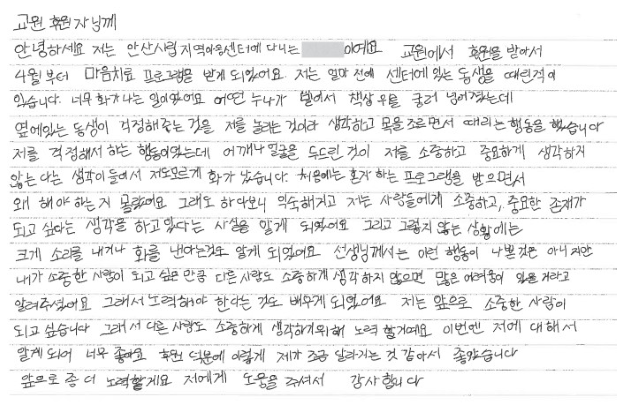 교원 후원자님께
안녕하세요 저는 안산시립지역아동센터에 다니는 이에요 교원에서 후원을 받아서
4월부터 마음치료 프로그램을 받게 되었어요. 저는 얼마 전에 센터에 있는 동생을 때린적이
있습니다. 너무 화가 나는 일이었어요 어떤 누나가 밀어서 책상 위를 굴러 넘어졌는데
옆에있는 동생이 걱정해주는 것을 저를 놀리는 것이라 생각하고 목을 조르면서 때리는 행동을 했습니다
저를 걱정해서 하는 행동이었는데 어깨나 얼굴을 두드린 것이 저를 소중하고 중요하게 생각하지
않는 다는 생각이 들어서 저도모르게 화가 났습니다. 처음에는 혼자 하는 프로그램을 받으면서
왜 해야 하는 거 몰랐어요 그래도 하다보니 익숙해거고 저는 사람들에게 소중하고, 중요한 존재가
되고 싶다는 생각을 하고있다는 사실을 알게 되었어요 그리고 그렇지 않는 상황에는
크게 소리를 내거나 화를 낸다는것도 알게 되었어요 선생님께서는 이런 행동이 나쁠것은 아니지만
내가 소중한 사람이 되고 싶은 만큼 다른 사람도 소중하게 생각하지 않으면 많은 어려움이 있을 거라고
알려주셨어요 그래서 노력해야 한다는 것도 배우게 되었어요 저는 앞으로 소중한 사람이
되고 싶습니다 그래서 다른 사람도 소중하게 생각하기위해 노력 할거예요 이번엔 저에 대해서
알게 되어 너무 좋아요 후원 덕분에 이렇게 제가 조금 달라지는 것 같아서 좋았습니다
앞으로 좀 더 노력할게요 저에게 도움을 주셔서 감사합니다